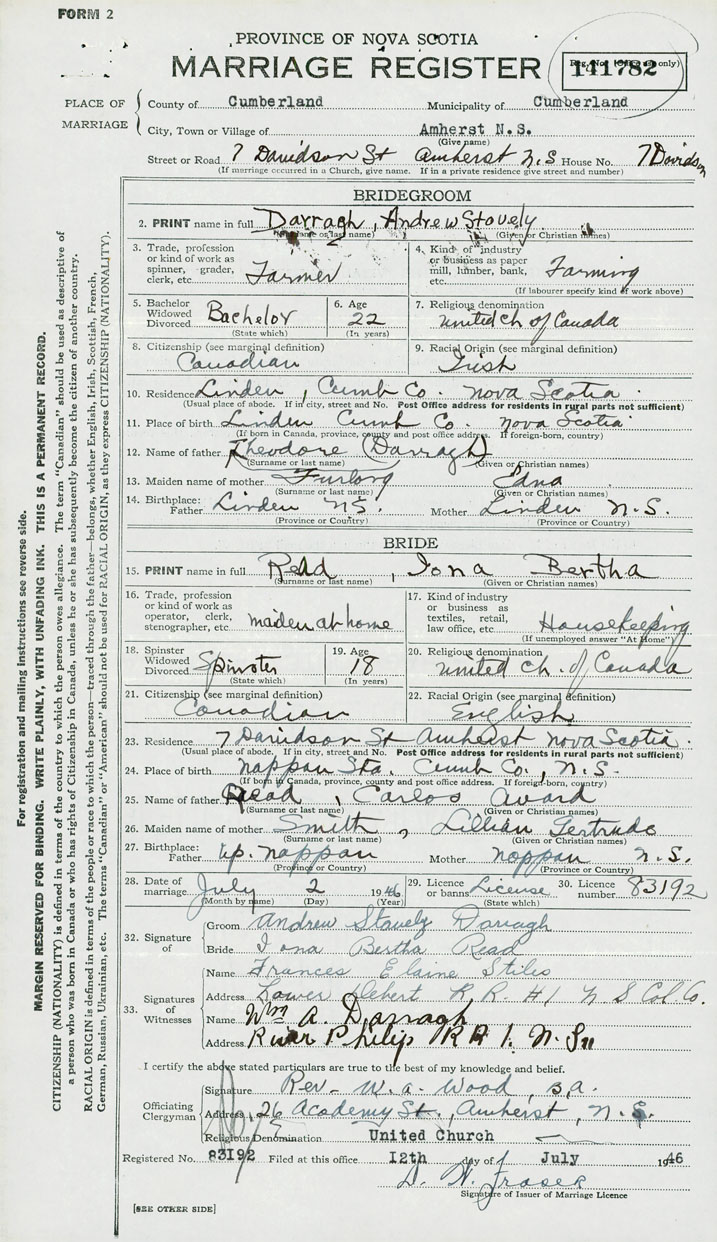 FORM 2
PROVINCE OF NOVA SCOTIA
MARRIAGE REGISTER
Reg. No. (Office use only)
141782
PLACE OF MARRIAGE
County of Cumberland Municipality of Cumberland
City, Town or Village of Amherst N.S.
(Give name)
Street or Road 7 Davidson St Amherst N.S House No. 7 Davidson
(If marriage occurred in a Church, give name. If in a private residence give street and number)
BRIDEGROOM
2. PRINT name in full Darragh, Andrew Stavely
(Surname or last name) (Given or Christian names)
3. Trade, profession or kind of work as spinner, grader, clerk, etc. Farmer
4. Kind of industry or business as paper mill, lumber, bank, etc. Farming
(If labourer specify kind of work above)
5. Bachelor Widowed Divorced Bachelor
(State which)
6. Age 22
(In years)
7. Religious denomination United Ch of Canada
8. Citizenship (see marginal definition) Canadian
9. Racial Origin (see marginal definition) Irish
10. Residence Linden, Cumb Co. Nova Scotia
(Usual place of abode. If in city, street and No. Post Office address for residents in rural parts not sufficient)
11. Place of birth Linden Cumb Co. Nova Scotia
(If born in Canada, province, county and post office address. If foreign-born, country)
12. Name of father Theodore (Darragh)
(Surname or last name) (Given or Christian names)
13. Maiden name of mother Furlong Edna
(Surname or last name) (Given or Christian names)
14. Birthplace: Father Linden NS. Mother Linden N.S.
(Province or Country) (Province or Country)
BRIDE
15. PRINT name in full Read, Iona Bertha
(Surname or last name) (Given or Christian names)
16. Trade, profession or kind of work as operator, clerk, stenographer, etc. maiden at home
17. Kind of industry or business as textiles, retail, law office, etc. Housekeeping
(If unemployed answer "At Home")
18. Spinster Widowed Divorced Spinster
(State which)
19. Age 18
(In years)
20. Religious denomination United Ch. of Canada
21. Citizenship (see marginal definition) Canadian
22. Racial Origin (see marginal definition) English
23. Residence 7 Davidson St Amherst Nova Scotia.
(Usual place of abode. If in city, street and No. Post Office address for residents in rural parts not sufficient)
24. Place of birth Nappan Sta. Cumb Co., N.S.
(If born in Canada, province, county and post office address. If foreign-born, country)
25. Name of father Read, Carlos Avard
(Surname or last name) (Given or Christian names)
26. Maiden name of mother Smith, Lillian Gertrude
(Surname or last name) (Given or Christian names)
27. Birthplace: Father Up. Nappan Mother Nappan N.S.
(Province or Country) (Province or Country)
28. Date of marriage July 2 1946
(Month by name) (Day) (Year)
29. Licence or banns License
(State which)
30. Licence number 83192
32. Signature of
Groom Andrew Stavely Darragh
Bride Iona Bertha Read
33. Signatures of Witnesses
Name Frances Elaine Stiles
Address Lower Debert R.R. #1 N S Col Co.
Name Wm A. Darragh
Address River Philip RR 1. N.S.
I certify the above stated particulars are true to the best of my knowledge and belief.
Officiating Clergyman
Signature Rev. W. A. Wood, B.A.
Address 26 Academy St., Amherst, N.S.
Religious Denomination United Church
Registered No. 83192 Filed at this office 12th day of July 1946
D. W. Fraser
Signature of Issuer of Marriage Licence
[SEE OTHER SIDE]
For registration and mailing instructions see reverse side.
MARGIN RESERVED FOR BINDING. WRITE PLAINLY, WITH UNFADING INK. THIS IS A PERMANENT RECORD.
CITIZENSHIP (NATIONALITY) is defined in terms of the country to which the person owes allegiance. The term "Canadian" should be used as descriptive of
a person who was born in Canada or who has rights of Citizenship in Canada, unless he or she has subsequently become the citizen of another country.
RACIAL ORIGIN is defined in terms of the people or race to which the person—traced through the father—belongs, whether English, Irish, Scottish, French,
German, Russian, Ukrainian, etc. The terms "Canadian" or "American" should not be used for RACIAL ORIGIN, as they express CITIZENSHIP (NATIONALITY).